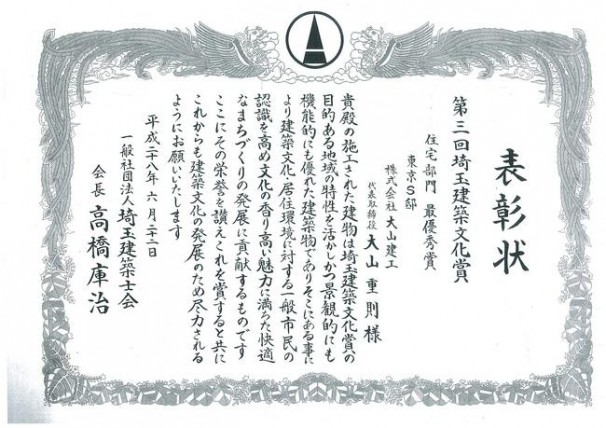 表彰状
第三回埼玉建築文化賞
住宅部門 最優秀賞
東京S邸
株式会社 大山建工
代表取締役 大山重則様
貴殿の施工された建物は埼玉建築文化賞の
目的ある地域の特性を活かしかつ景観的にも
機能的にも優れた建築物でありそこにある事に
より建築文化・居住環境に対する一般市民の
認識を高め文化の香り高い魅力に満ちた快適
なまちづくりの発展に貢献するものです
ここにその栄誉を讃えこれを賞すると共に
これからも建築文化の発展のため尽力される
ようにお願いいたします
平成二十八年六月二十二日
一般社団法人埼玉建築士会
会長 高橋庫治